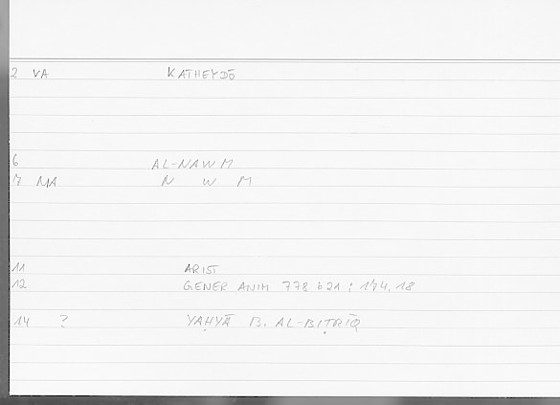 2 VA KATHEYDŌ
6 AL-NAWM
7 NA N W M
11 ARIST
12 GENER ANIM 778 b 21 : 174.18
14 ? YAḤYĀ B. AL-BIṬRĪQ